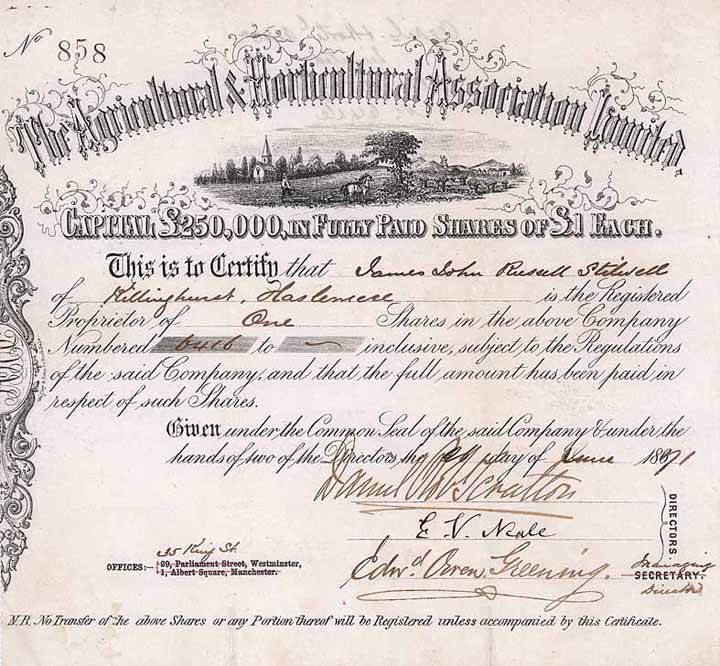 No 858
The Agricultural & Horticultural Association Limited.
CAPITAL £250,000, IN FULLY PAID SHARES OF £1 EACH.
This is to Certify that James John Russell Stilwell
of Killinghurst, Haslemere is the Registered
Proprietor of One Shares in the above Company
Numbered 6416 to — inclusive, subject to the Regulations
of the said Company, and that the full amount has been paid in
respect of such Shares.
Given under the Common Seal of the said Company & under the
hands of two of the Directors, the day of June 1871
Daniel Scratton
E V. Neale
DIRECTORS
35 King St.
OFFICES:— 29, Parliament Street, Westminster,
1, Albert Square, Manchester.
Edwd Owen Greening.
Managing
SECRETARY.
Director
N.B. No Transfer of the above Shares or any Portion thereof will be Registered unless accompanied by this Certificate.